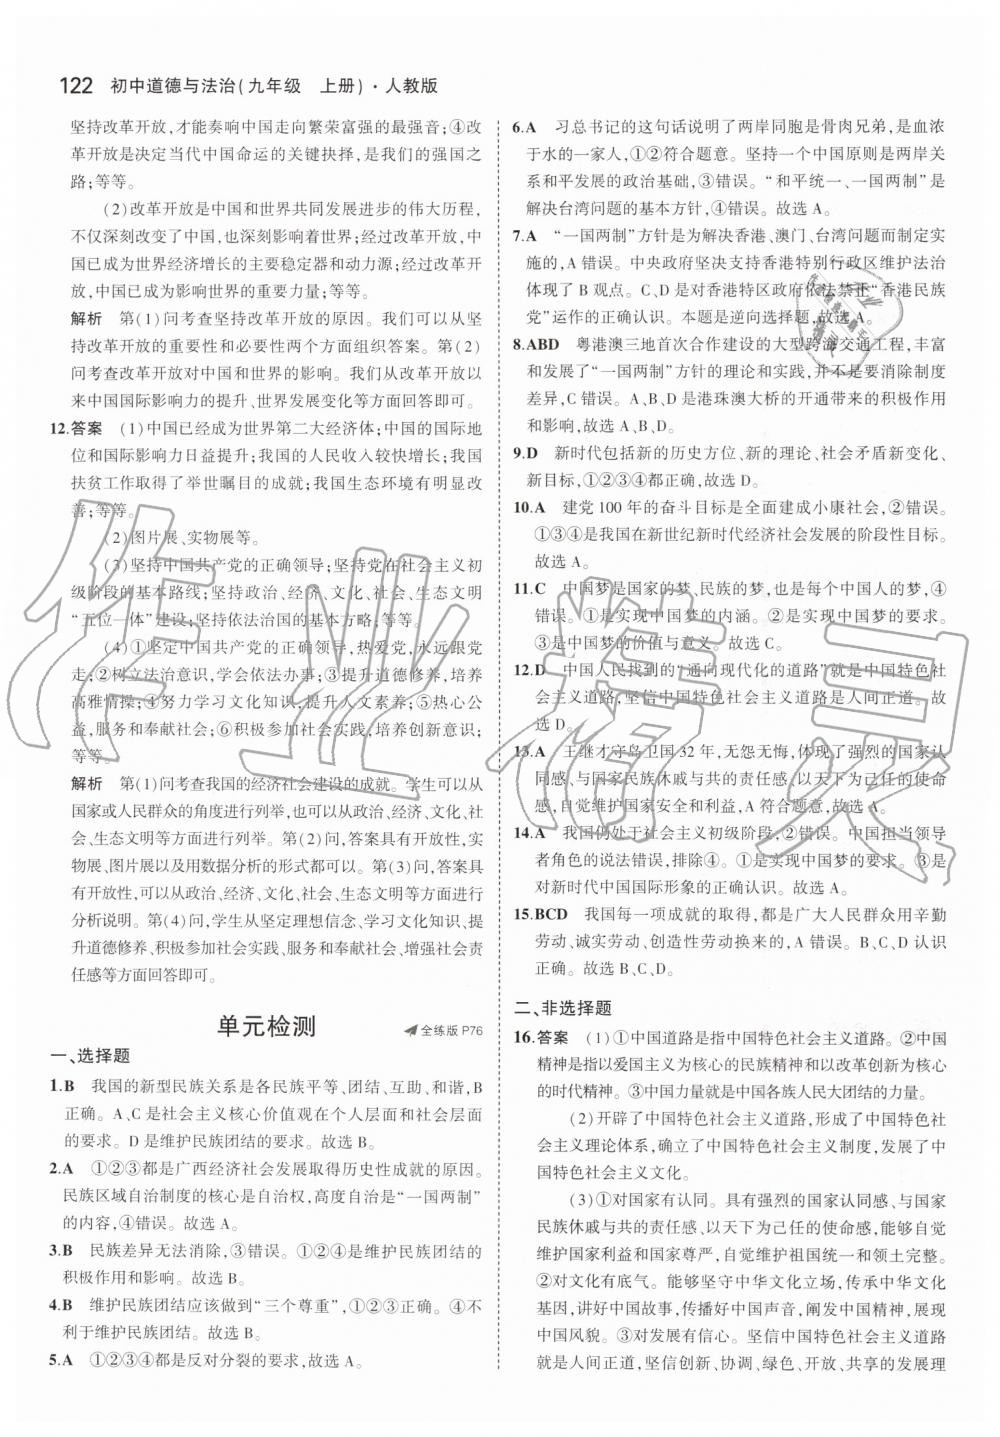 122 初中道德与法治(九年级 上册)·人教版
坚持改革开放,才能奏响中国走向繁荣富强的最强音;④改
革开放是决定当代中国命运的关键抉择,是我们的强国之
路;等等。
(2)改革开放是中国和世界共同发展进步的伟大历程,
不仅深刻改变了中国,也深刻影响了世界;经过改革开放,中
国已成为世界经济增长的主要稳定器和动力源;经过改革开
放,中国已成为影响世界的重要力量;等等。
解析 第(1)问考查坚持改革开放的原因。我们可以从坚
持改革开放的重要性和必要性两个方面组织答案。第(2)
问考查改革开放对中国和世界的影响。我们从改革开放以
来中国国际影响力的提升、世界发展变化等方面回答即可。
12.答案 (1)中国已经成为世界第二大经济体;中国的国际地
位和国际影响力日益提升;我国的人民收入较快增长;我国
扶贫工作取得了举世瞩目的成就;我国生态环境有明显改
善;等等。
(2)图片展、实物展等。
(3)坚持中国共产党的正确领导;坚持党在社会主义初
级阶段的基本路线;坚持政治、经济、文化、社会、生态文明
“五位一体”建设;坚持依法治国的基本方略;等等。
(4)①坚定中国共产党的正确领导,热爱党,永远跟党
走;②树立法治意识,学会依法办事;③提升道德修养,培养
高雅情操;④努力学习文化知识,提升人文素养;⑤热心公
益,服务和奉献社会;⑥积极参加社会实践,培养创新意识;
等等。
解析 第(1)问考查我国的经济社会建设的成就。学生可以从
国家或人民群众的角度进行列举,也可以从政治、经济、文化、社
会、生态文明等方面进行列举。第(2)问,答案具有开放性,实
物展、图片展以及用数据分析的形式都可以。第(3)问,答案具
有开放性,可以从政治、经济、文化、社会、生态文明的角度进行
分析说明。第(4)问,学生从坚定理想信念、学习文化知识、提
升道德修养、积极参加社会实践、服务和奉献社会、增强社会责
任感等方面回答即可。
单元检测 全练版 P76
一、选择题
1.B 我国的新型民族关系是各民族平等、团结、互助、和谐,B
正确。A、C是社会主义核心价值观在个人层面和社会层面
的要求。D是维护民族团结的要求。故选 B。
2.A ①②③都是广西经济社会发展取得历史性成就的原因。
民族区域自治制度的核心是自治权,高度自治是“一国两制”
的内容,④错误。故选 A。
3.B 民族差异无法消除,③错误。①②④是维护民族团结的
积极作用和影响。故选 B。
4.B 维护民族团结应该做到“三个尊重”,其他正确。④不
利于维护民族团结。故选 B。
5.A ①②③④都是反对分裂的要求,故选 A。
6.A 习总书记的这句话说明了两岸同胞是骨肉兄弟,是血浓
于水的一家人,①②符合题意。坚持一个中国原则是两岸关
系和平发展的政治基础,③错误。“和平统一、一国两制”是
解决台湾问题的基本方针,④错误。故选 A。
7.A “一国两制”方针是为解决香港、澳门、台湾问题而制定
的,A 错误。中央政府坚决支持香港特别行政区维护法治
体现了 B 观点。C、D是对香港特区政府依法禁止“香港民族
党”运作的正确认识。本题是逆向选择题,故选 A。
8.ABD 粤港澳三地首次合作建设的大型跨海交通工程,丰富
和发展了“一国两制”方针的理论和实践,并不是要消除制度
差异,C 错误。A、B、D是港珠澳大桥的开通带来的积极作用
和影响,故选 A、B、D。
9.D 新时代包括新的历史方位、新的理论、社会矛盾新变化、
新目标,①②③④都正确。故选 D。
10.A 建党 100 年的奋斗目标是全面建成小康社会,②错误。
①③④是我国在新世纪新时代经济社会发展的阶段性目标。
故选 A。
11.C 中国梦是国家的梦、民族的梦,也是每个中国人的梦,④
错误。①是实现中国梦的内涵。②是实现中国梦的要求。
③是中国梦的价值与意义。故选 C。
12.D 中国人民找到的“通向现代化的道路”就是中国特色社
会主义道路,坚信中国特色社会主义道路是人间正道。故
选 D。
13.A 王继才守岛卫国 32 年,无怨无悔,体现了强烈的国家认
同感、与国家民族休戚与共的责任感、以天下为己任的使命
感,自觉维护国家安全和利益,A 符合题意,故选 A。
14.A 我国仍处于社会主义初级阶段,②错误。中国担当领导
者角色的说法错误,排除④。①是实现中国梦的要求。③是
对新时代中国国际形象的正确认识。故选 A。
15.BCD 我国每一项成就的取得,都是广大人民群众用辛勤
劳动、诚实劳动、创造性劳动换来的,A 错误。B、C、D认识
正确。故选 B、C、D。
二、非选择题
16.答案 (1)①中国道路是指中国特色社会主义道路。②中国
精神是指以爱国主义为核心的民族精神和以改革创新为核心
的时代精神。③中国力量就是中国各族人民大团结的力量。
(2)开辟了中国特色社会主义道路,形成了中国特色社
会主义理论体系,确立了中国特色社会主义制度,发展了中
国特色社会主义文化。
(3)①对国家有认同。具有强烈的国家认同感、与国家
民族休戚与共的责任感、以天下为己任的使命感,能够自觉
维护国家利益和国家尊严,自觉维护祖国统一和领土完整。
②对文化有底气。能够坚守中华文化立场,传承中华文化
基因,讲好中国故事,传播好中国声音,阐发中国精神,展现
中国风貌。③对发展有信心。坚信中国特色社会主义道路
就是人间正道,坚信创新、协调、绿色、开放、共享的发展理
作业精灵